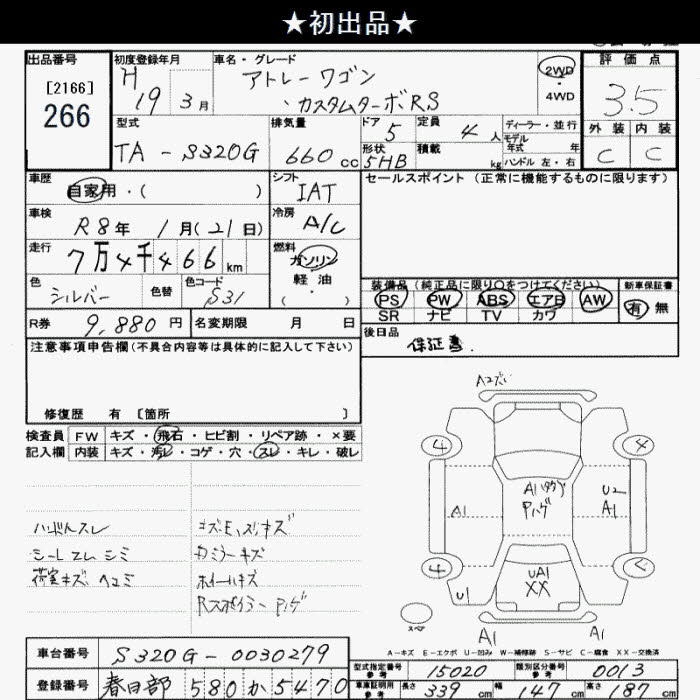 ★初出品★
出品番号
[2166]
266
初度登録年月
H 19年 3月
車名・グレード
アトレーワゴン
カスタムターボRS
2WD
・
4WD
評価点
3.5
外装 内装
C C
型式
TA - S320G
排気量
660 cc
ドア 5
形状 5HB
定員 4 人
積載 kg
ディーラー・並行
モデル年式 年
ハンドル 左・右
車歴
自家用・( )
シフト
IAT
セールスポイント(正常に機能するものに限ります)
車検
R8年 1月(21日)
冷房
A/C
走行
7万4千466km
燃料
ガソリン
軽油
・( )
色
シルバー
色替
色コード
S31
装備品(純正品に限り○をつけてください)
PS PW ABS エアB AW
SR ナビ TV カワ
新車保証書
有 無
R券 9,880円
名変期限 月 日
後日品
保証書
注意事項申告欄(不具合内容等は具体的に記入して下さい)
修復歴 有 [箇所 ]
検査員記入欄
FW キズ・飛石・ヒビ割・リペア跡・×要
内装 キズ・汚レ・コゲ・穴・スレ・キレ・破レ
ハンドルスレ
シートスレ シミ
荷室キズ ヘコミ
カミラーキズ
ホイールキズ
Rスポイラー Pハゲ
4 4
A1
A1
Pハゲ
U2
A1
4
U1
UA1
XX
スペア
A1 A1
A-キズ E-エクボ U-凹み W-補修跡 S-サビ C-腐食 XX-交換済
車台番号 S320G-0030279
登録番号 春日部 580 か 5470
型式指定番号 参考 15020
類別区分番号 参考 0013
車庫証明用 参考 長さ 339cm 幅 147cm 高さ 187cm